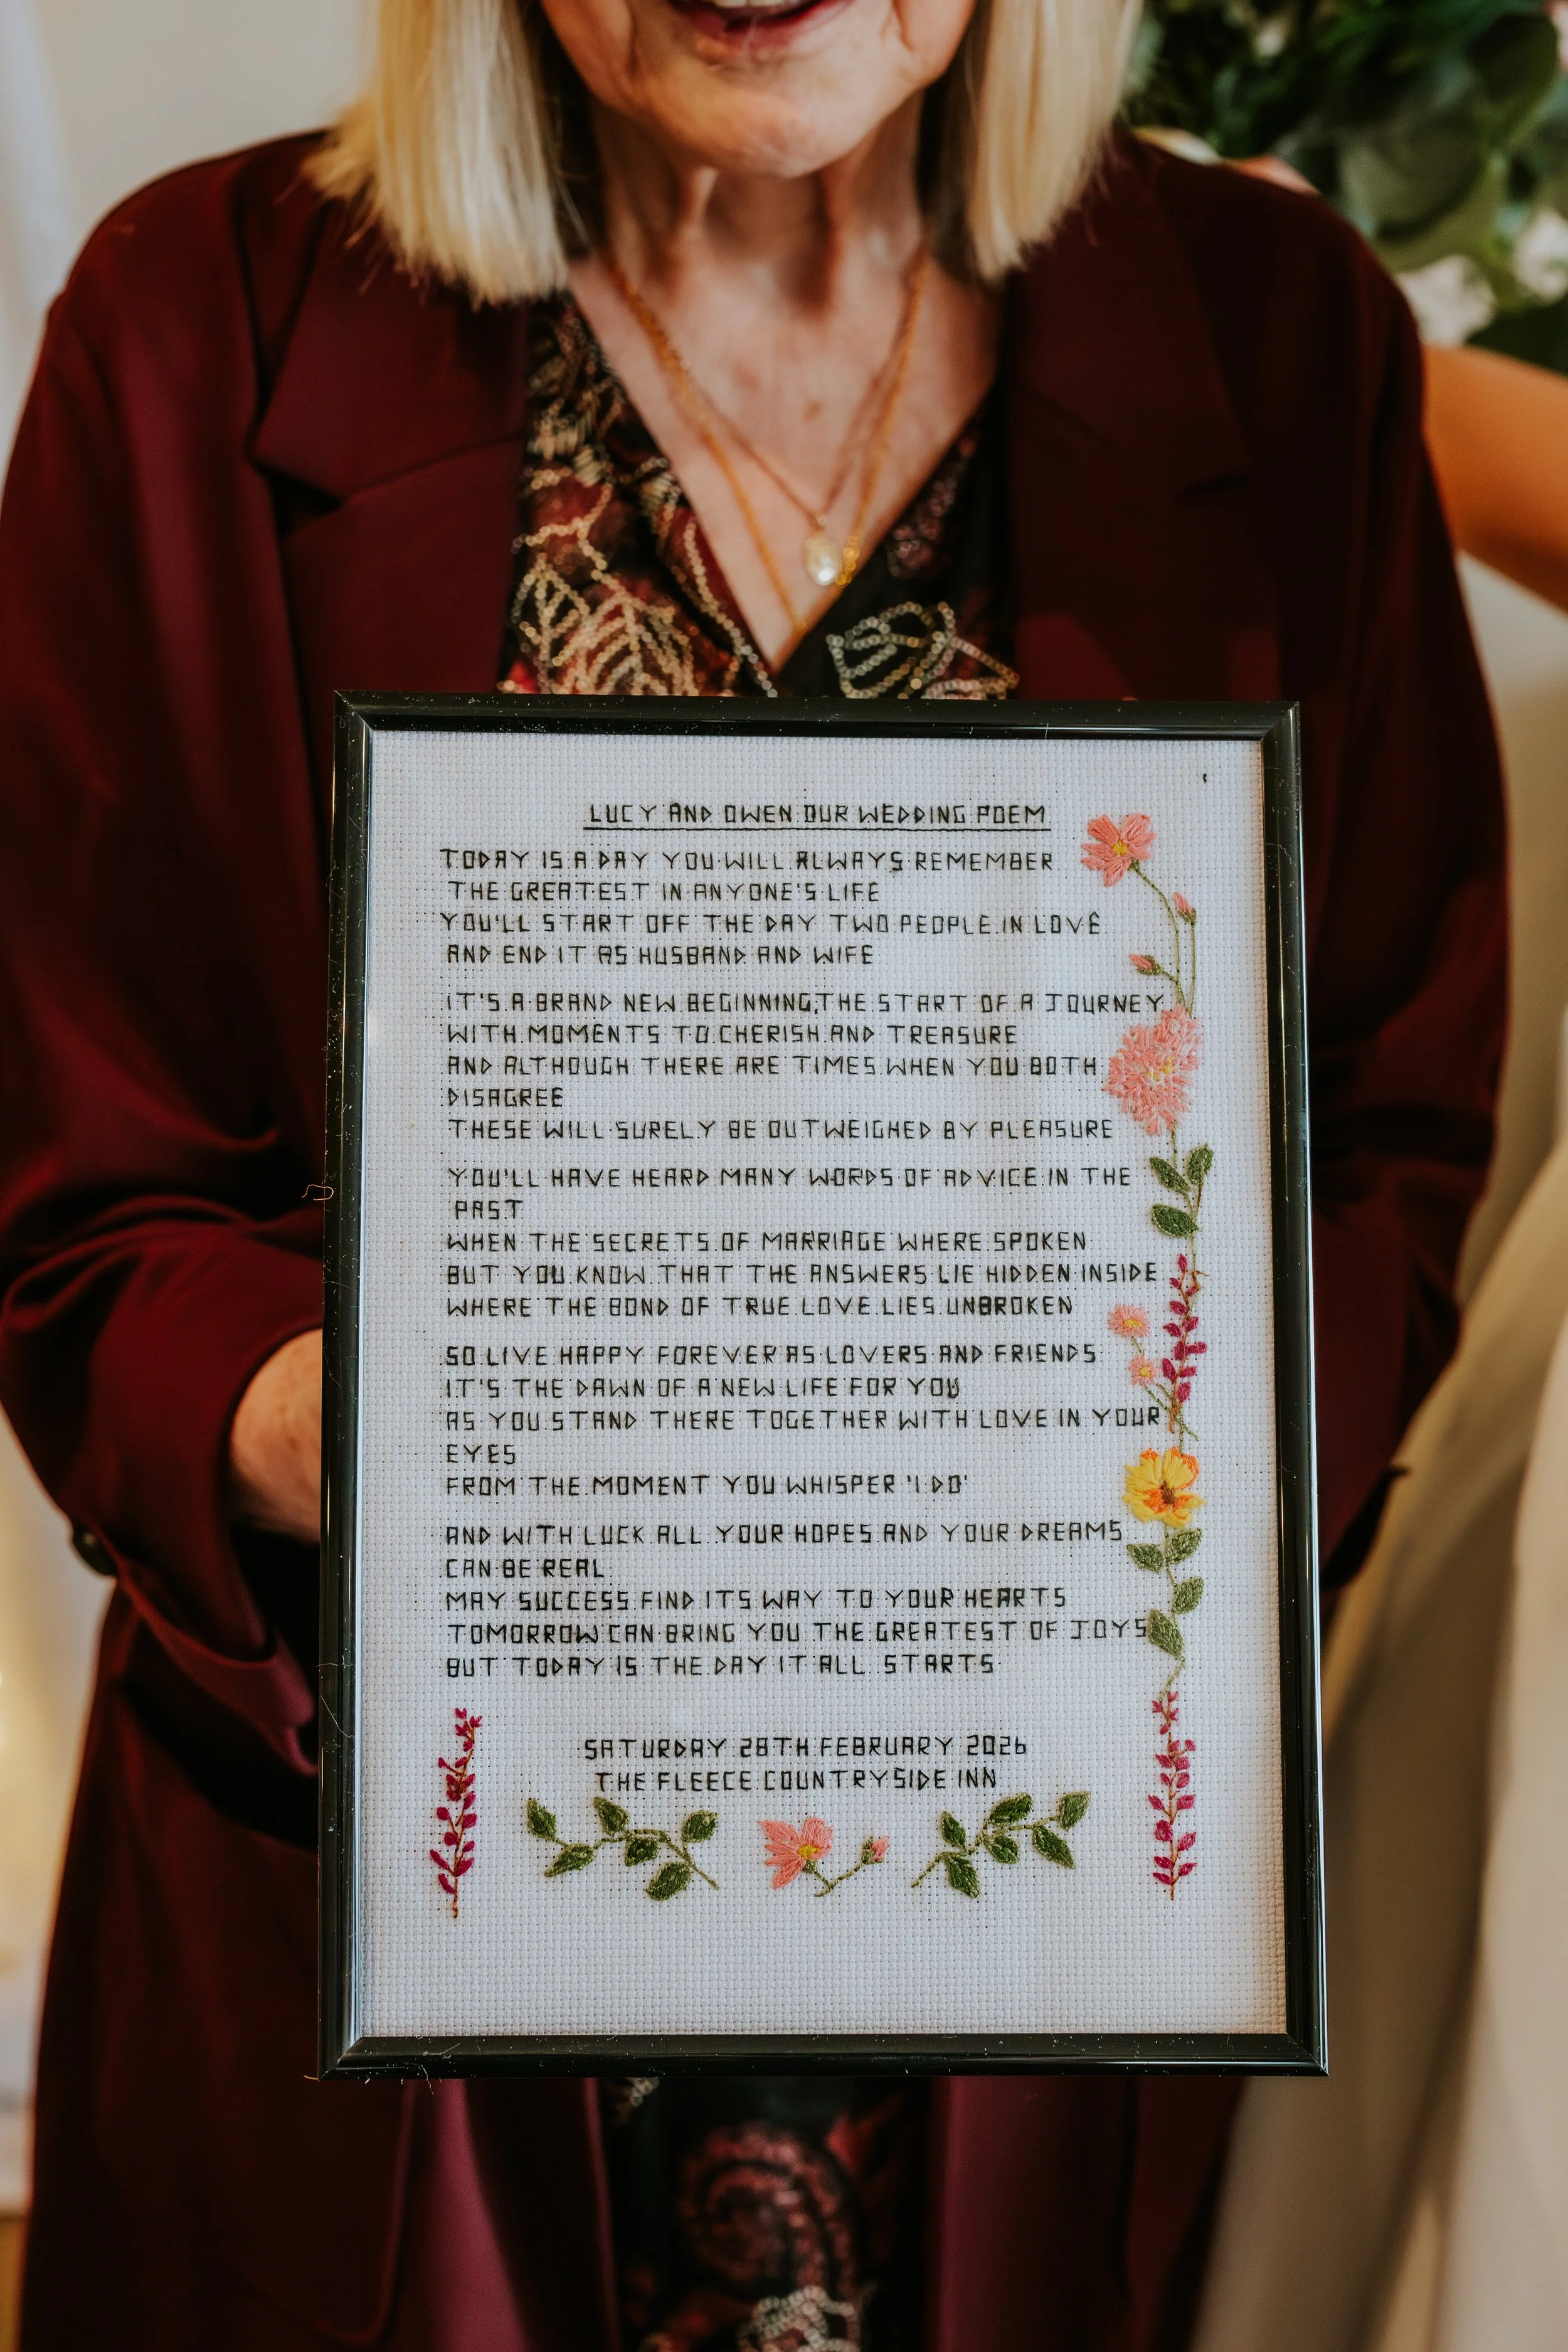 LUCY AND OWEN OUR WEDDING POEM
TODAY IS A DAY YOU WILL ALWAYS REMEMBER
THE GREATEST IN ANYONE'S LIFE
YOU'LL START OFF THE DAY TWO PEOPLE IN LOVE
AND END IT AS HUSBAND AND WIFE
IT'S A BRAND NEW BEGINNING, THE START OF A JOURNEY
WITH MOMENTS TO CHERISH AND TREASURE
AND ALTHOUGH THERE ARE TIMES WHEN YOU BOTH
DISAGREE
THESE WILL SURELY BE OUTWEIGHED BY PLEASURE
YOU'LL HAVE HEARD MANY WORDS OF ADVICE IN THE
PAST
WHEN THE SECRETS OF MARRIAGE WHERE SPOKEN
BUT YOU KNOW THAT THE ANSWERS LIE HIDDEN INSIDE
WHERE THE BOND OF TRUE LOVE LIES UNBROKEN
SO LIVE HAPPY FOREVER AS LOVERS AND FRIENDS
IT'S THE DAWN OF A NEW LIFE FOR YOU
AS YOU STAND THERE TOGETHER WITH LOVE IN YOUR
EYES
FROM THE MOMENT YOU WHISPER 'I DO'
AND WITH LUCK ALL YOUR HOPES AND YOUR DREAMS
CAN BE REAL
MAY SUCCESS FIND ITS WAY TO YOUR HEARTS
TOMORROW CAN BRING YOU THE GREATEST OF JOYS
BUT TODAY IS THE DAY IT ALL STARTS
SATURDAY 28TH FEBRUARY 2026
THE FLEECE COUNTRYSIDE INN